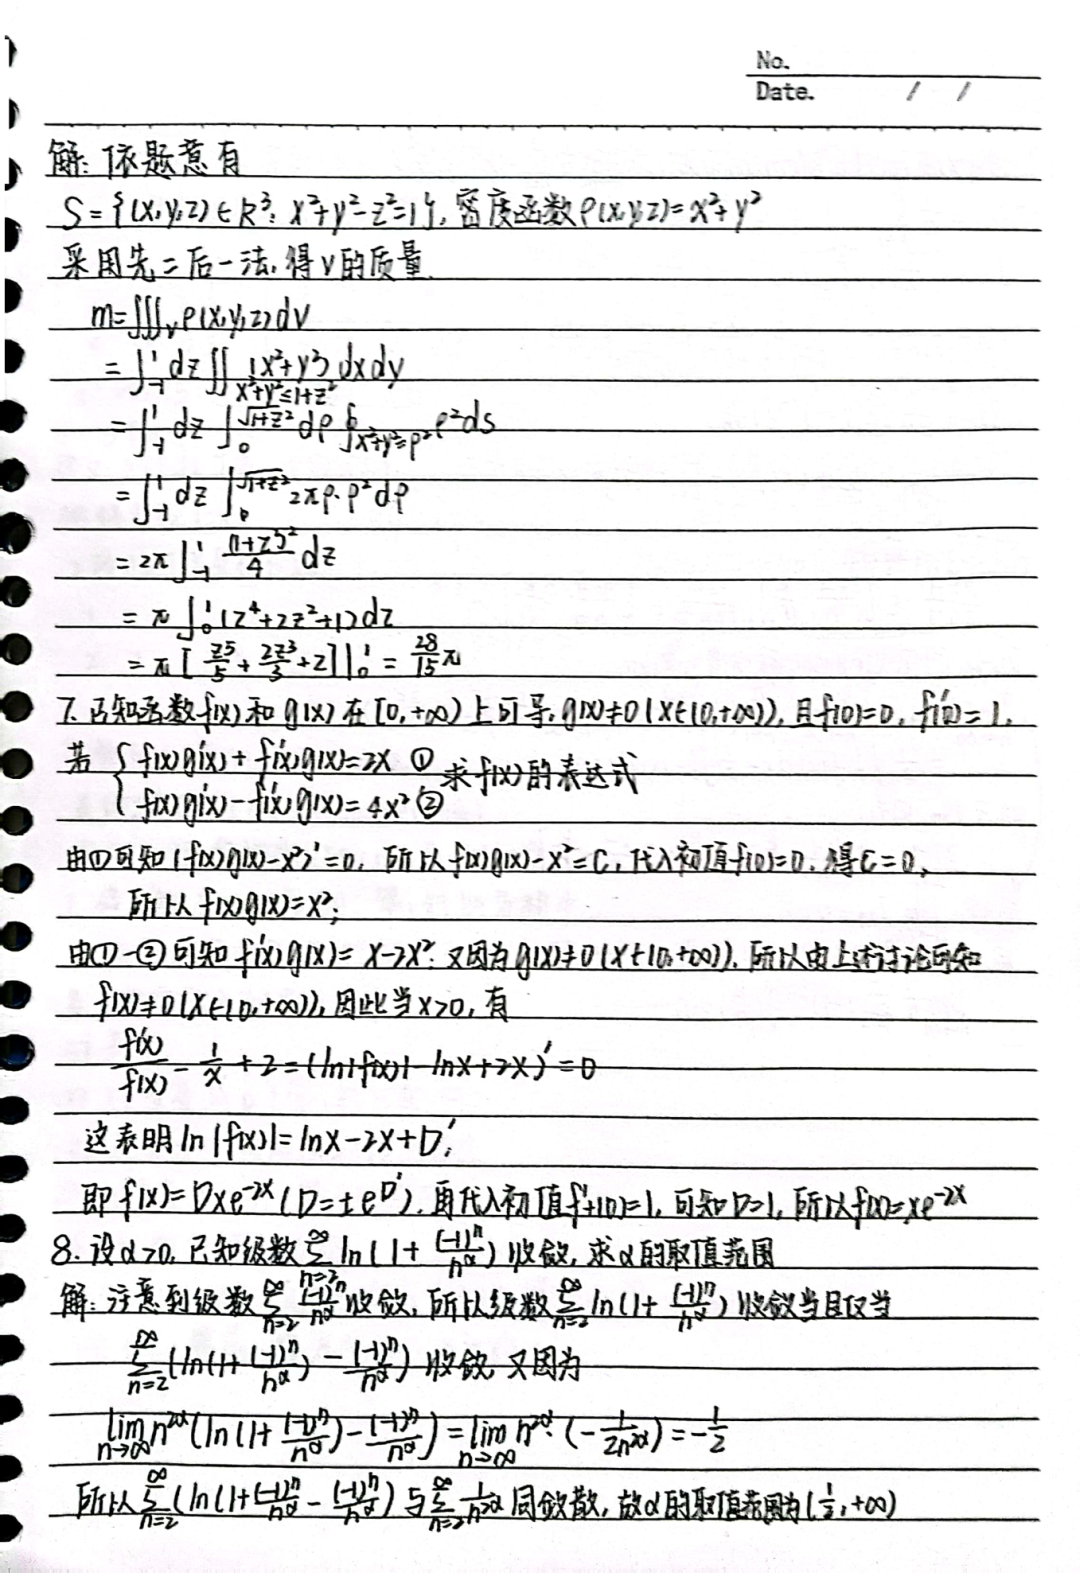 No.
Date. / /
解: 依题意有
S={(x,y,z)∈R³: x²+y²-z²=1}, 密度函数ρ(x,y,z)=x²+y²
采用先二后一法, 得V的质量
m=∭_V ρ(x,y,z)dV
=∫_{-1}^{1} dz ∬_{x²+y²≤1+z²} (x²+y²) dxdy
=∫_{-1}^{1} dz ∫_0^{√(1+z²)} dρ ∮_{x²+y²=ρ²} ρ²ds
=∫_{-1}^{1} dz ∫_0^{√(1+z²)} 2πρ·ρ²dρ
=2π ∫_{-1}^{1} (1+z²)²/4 dz
=π ∫_0^1 (z⁴+2z²+1)dz
=π [z⁵/5 + 2z³/3 + z]|_0^1 = 28/15 π
7. 已知函数f(x)和g(x)在[0,+∞)上可导, g(x)≠0(x∈(0,+∞)), 且f(0)=0, f'(0)=1,
若 { f(x)g'(x)+f'(x)g(x)=2x ① 求f(x)的表达式
f(x)g'(x)-f'(x)g(x)=4x² ②
由①可知(f(x)g(x)-x²)'=0, 所以f(x)g(x)-x²=C, 代入初值f(0)=0, 得C=0,
所以f(x)g(x)=x²;
由①-②可知f'(x)g(x)=x-2x²; 又因为g(x)≠0(x∈(0,+∞)), 所以由上述讨论可知
f(x)≠0(x∈(0,+∞)), 因此当x>0, 有
f'(x)/f(x) - 1/x + 2 = (ln|f(x)|-lnx+2x)'=0
这表明ln|f(x)|=lnx-2x+D',
即f(x)=Dxe^{-2x}(D=±e^{D'}), 再代入初值f'+(0)=1, 可知D=1, 所以f(x)=xe^{-2x}
8. 设α>0, 已知级数∑_{n=2}^{∞} ln(1+(-1)ⁿ/n^α)收敛, 求α的取值范围
解: 注意到级数∑_{n=2}^{∞} (-1)ⁿ/n^α 收敛, 所以级数∑_{n=2}^{∞} ln(1+(-1)ⁿ/n^α)收敛当且仅当
∑_{n=2}^{∞} (ln(1+(-1)ⁿ/n^α) - (-1)ⁿ/n^α) 收敛, 又因为
lim_{n→∞} n^{2α}(ln(1+(-1)ⁿ/n^α) - (-1)ⁿ/n^α) = lim_{n→∞} n^{2α}·(-1/(2n^{2α})) = -1/2
所以∑_{n=2}^{∞} (ln(1+(-1)ⁿ/n^α - (-1)ⁿ/n^α) 与∑_{n=2}^{∞} 1/n^{2α} 同敛散, 故α的取值范围为(1/2,+∞)